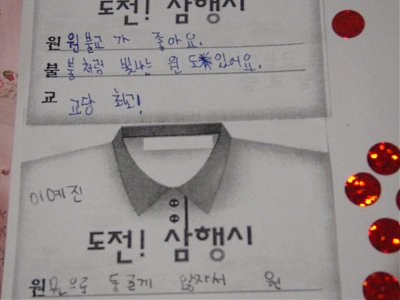 도전! 삼행시
원 원불교 가 좋아요.
불 불처럼 빛나는 원 도 있어요.
교 교당 최고!
이예진
도전! 삼행시
원 원으로 둥글게 앉자서 원